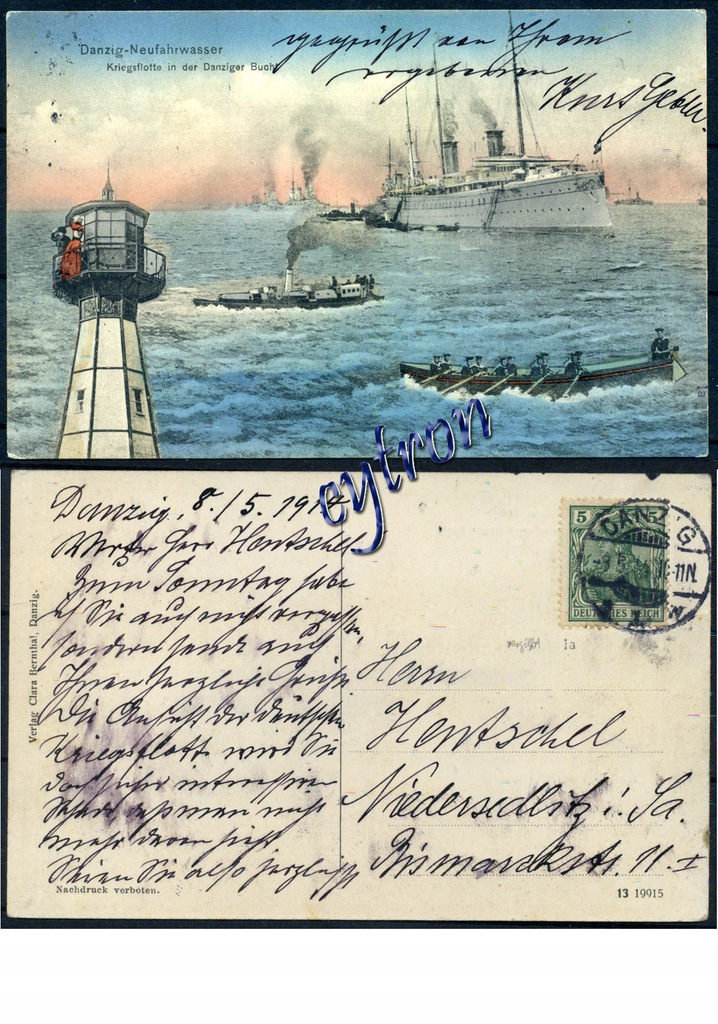 Danzig-Neufahrwasser
Kriegsflotte in der Danziger Bucht
gegrüßt von Ihrem
ergebenen
Kurt
cytron
Danzig, 8./5. 1914
Werter Herr Hentschel
Zum Sonntag habe
ich Sie auch nicht vergessen,
sondern sende auch
Ihnen herzliche Grüße
Die Ansicht der deutschen
Kriegsflotte wird Sie
doch sicher interessieren
Schade daß man nicht
mehr davon sieht
Seien Sie also herzlichst
Verlag Clara Bernthal, Danzig.
Nachdruck verboten.
5 5
DEUTSCHES REICH
DANZIG
11N.
Ia
Herrn
Hentschel
Niedersedlitz i. Sa.
Bismarckstr. 11. I
13 19915